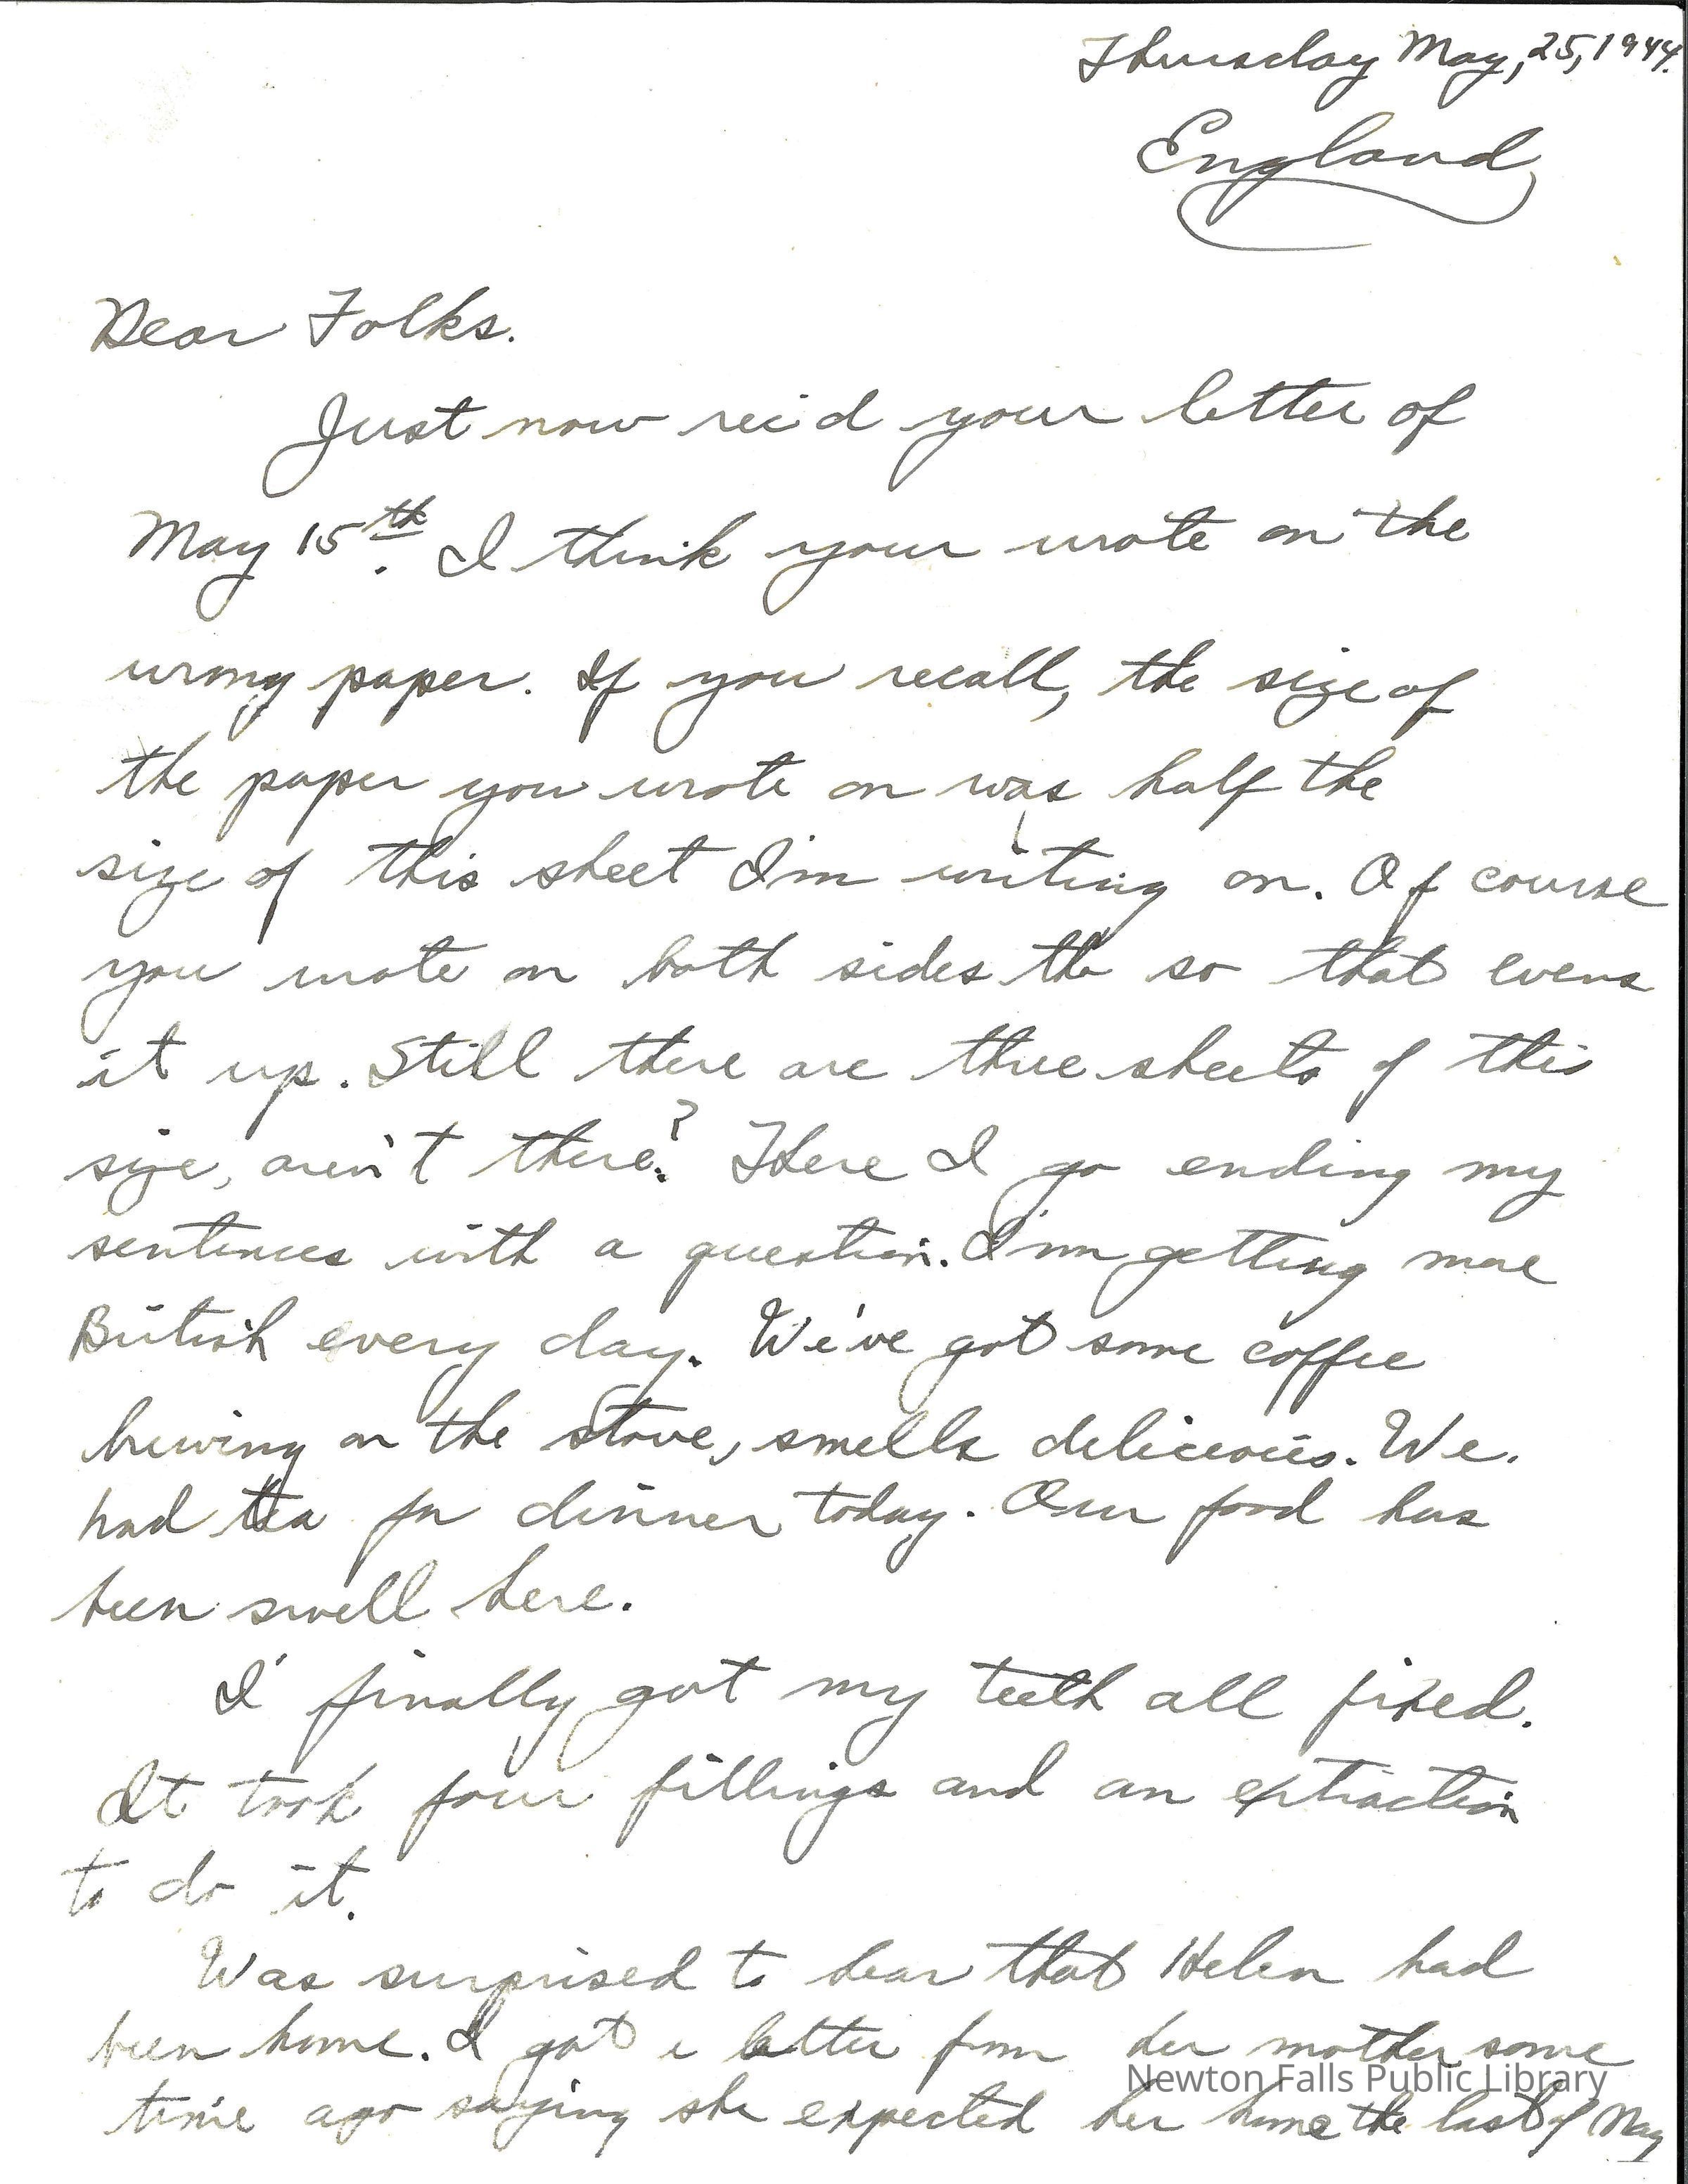 Thursday May, 25, 1944.
England
Dear Folks.
Just now rec'd your letter of
May 15th. I think your wrote on the
wrong paper. If you recall, the size of
the paper you wrote on was half the
size of this sheet I'm writing on. Of course
you wrote on both sides th so that evens
it up. Still there are three sheets of this
size, aren't there? There I go ending my
sentences with a question. I'm getting more
British every day. We've got some coffee
brewing on the stove, smells delicious. We.
had tea for dinner today. Our food has
been swell here.
I finally got my teeth all fixed.
It took four fillings and an extraction
to do it.
Was surprised to hear that Helen had
been home. I got a letter from her mother some
time ago saying she expected her home the last of May
Newton Falls Public Library